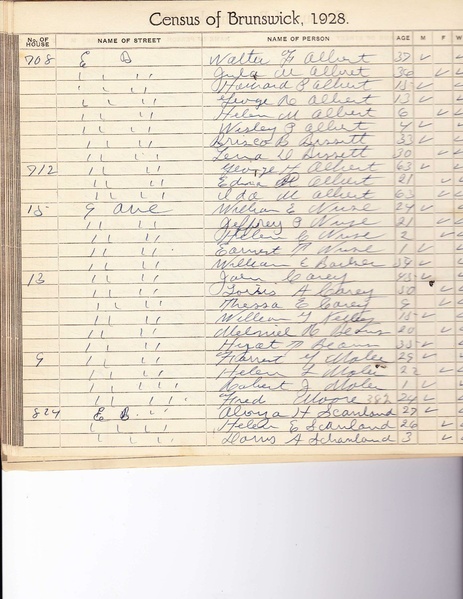 Census of Brunswick, 1928.
No. OF HOUSE NAME OF STREET NAME OF PERSON AGE M F W
708 E Walter F Albert 37 ✓
" " " M Albert 36 ✓
" " " Howard P Albert 15 ✓
" " " George R Albert 13 ✓
" " " Helen M Albert 6 ✓
" " " Wesley P Albert 4 ✓
" " " Brisco B Bissett 33 ✓
" " " Lena V Bissett 30 ✓
712 " " " George Albert 63 ✓
" " " Edna Albert 21 ✓
" " " Ida M Albert 63 ✓
15 G ave William E Wise 24 ✓
" " " Jeffrey P Wise 21 ✓
" " " Helen C Wise 2 ✓
" " " Earnest M Wise 1 ✓
" " " William E Barker
13 " " " John Carey 43 ✓
" " " A Carey 30 ✓
" " " Thressa E Carey 9 ✓
" " " William 15 ✓
" " " 20 ✓
" " " 33 ✓
9 " " " Forrest Y Moler 29 ✓
" " " Helen L Moler 22 ✓
" " " Robert J Moler 1 ✓
" " " Fred Moore 382 24 ✓
824 E B " " H Scanland 27 ✓
" " " Helen E Scanland 26 ✓
" " " Doris A Schanland 3 ✓